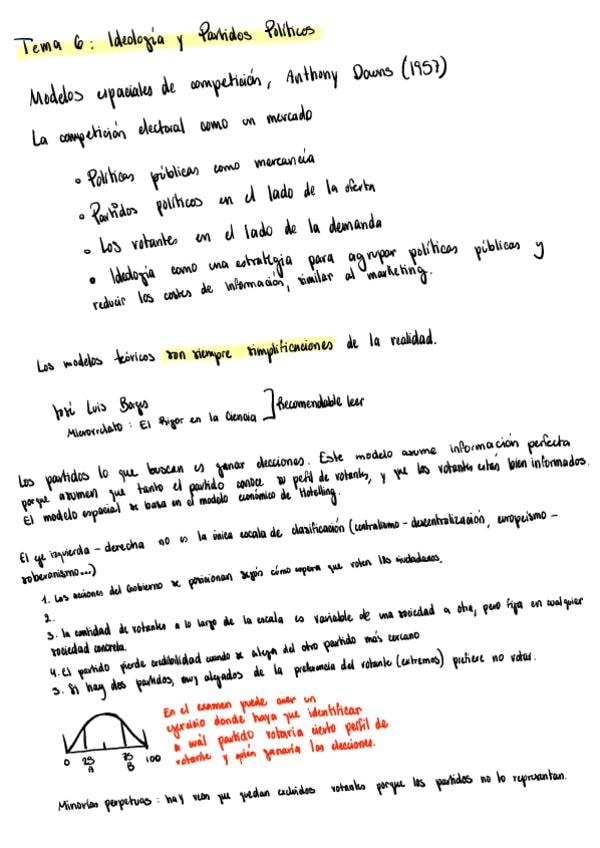 Tema 6: Ideología y Partidos Políticos
Modelos espaciales de competición, Anthony Downs (1957)
La competición electoral como un mercado
• Políticas públicas como mercancía
• Partidos políticos en el lado de la oferta
• Los votantes en el lado de la demanda
• Ideología como una estrategia para agrupar políticas públicas y
reducir los costes de información, similar al marketing.
Los modelos teóricos son siempre simplificaciones de la realidad.
José Luis Borges
Microrrelato: El Rigor en la Ciencia ] Recomendable leer
Los partidos lo que buscan es ganar elecciones. Este modelo asume información perfecta
porque asumen que tanto el partido conoce su perfil de votantes, y que los votantes están bien informados.
El modelo espacial se basa en el modelo económico de Hotelling.
El eje izquierda - derecha no es la única escala de clasificación (centralismo - descentralización, europeísmo -
soberanismo...)
1. Las acciones del Gobierno se posicionan según cómo espera que voten los ciudadanos.
2.
3. la cantidad de votantes a lo largo de la escala es variable de una sociedad a otra, pero fija en cualquier
sociedad concreta.
4. El partido pierde credibilidad cuando se aleja del otro partido más cercano
5. Si hay dos partidos, muy alejados de la preferencia del votante (extremos) prefiere no votar.
En el examen puede caer un
ejercicio donde haya que identificar
a cuál partido votaría cierto perfil de
votante y quién ganaría las elecciones.
0 25 75 100
A B
Minorías perpetuas: hay veces que quedan excluidos votantes porque los partidos no lo representan.